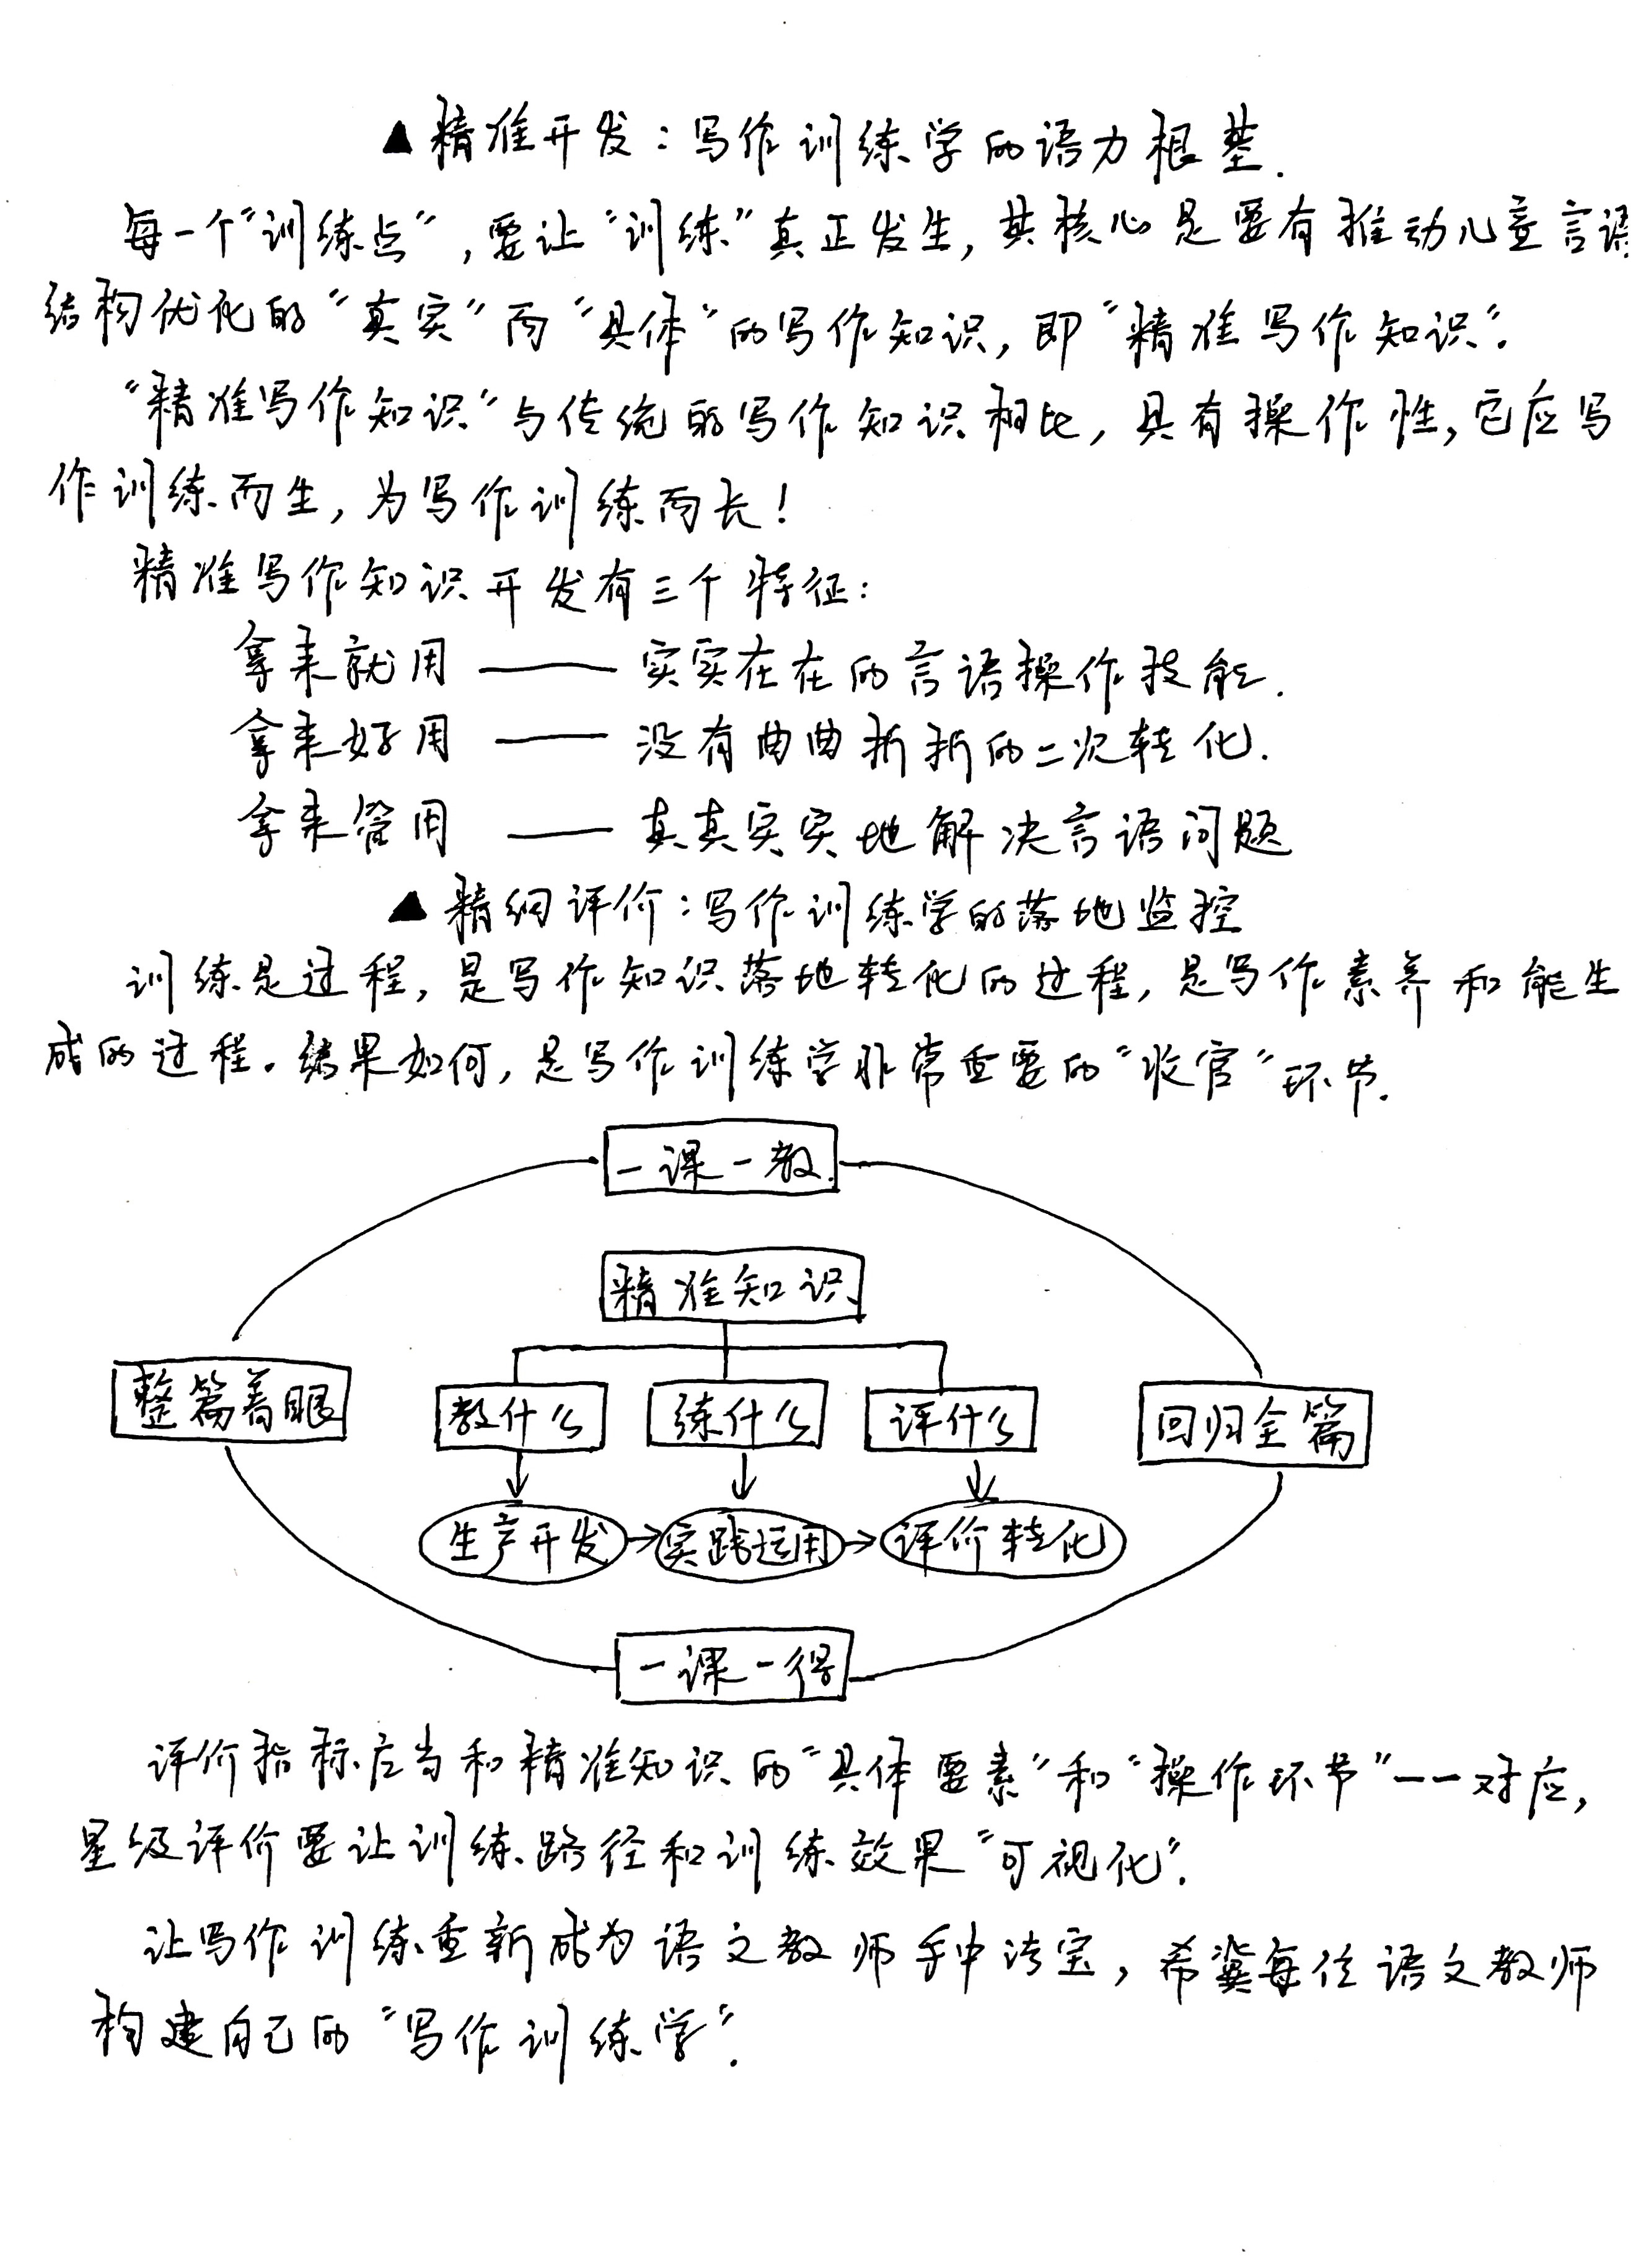 ▲精准开发：写作训练学的语力根基.
每一个“训练点”,要让“训练”真正发生,其核心是要有推动儿童言语
结构优化的“真实”而“具体”的写作知识,即“精准写作知识”.
“精准写作知识”与传统的写作知识相比,具有操作性,它应写
作训练而生,为写作训练而长!
精准写作知识开发有三个特征:
拿来就用——实实在在的言语操作技能.
拿来好用——没有曲曲折折的二次转化.
拿来管用——真真实实地解决言语问题
▲精细评价:写作训练学的落地监控
训练是过程,是写作知识落地转化的过程,是写作素养和能生
成的过程。结果如何,是写作训练学非常重要的“收官”环节.
一课一教.
精准知识
整篇着眼
教什么
练什么
评什么
回归全篇
生产开发
实践运用
评价转化
一课一得
评价指标应当和精准知识的“具体要素”和“操作环节”一一对应,
星级评价要让训练路径和训练效果“可视化”.
让写作训练重新成为语文教师手中法宝,希冀每位语文教师
构建自己的“写作训练学”.